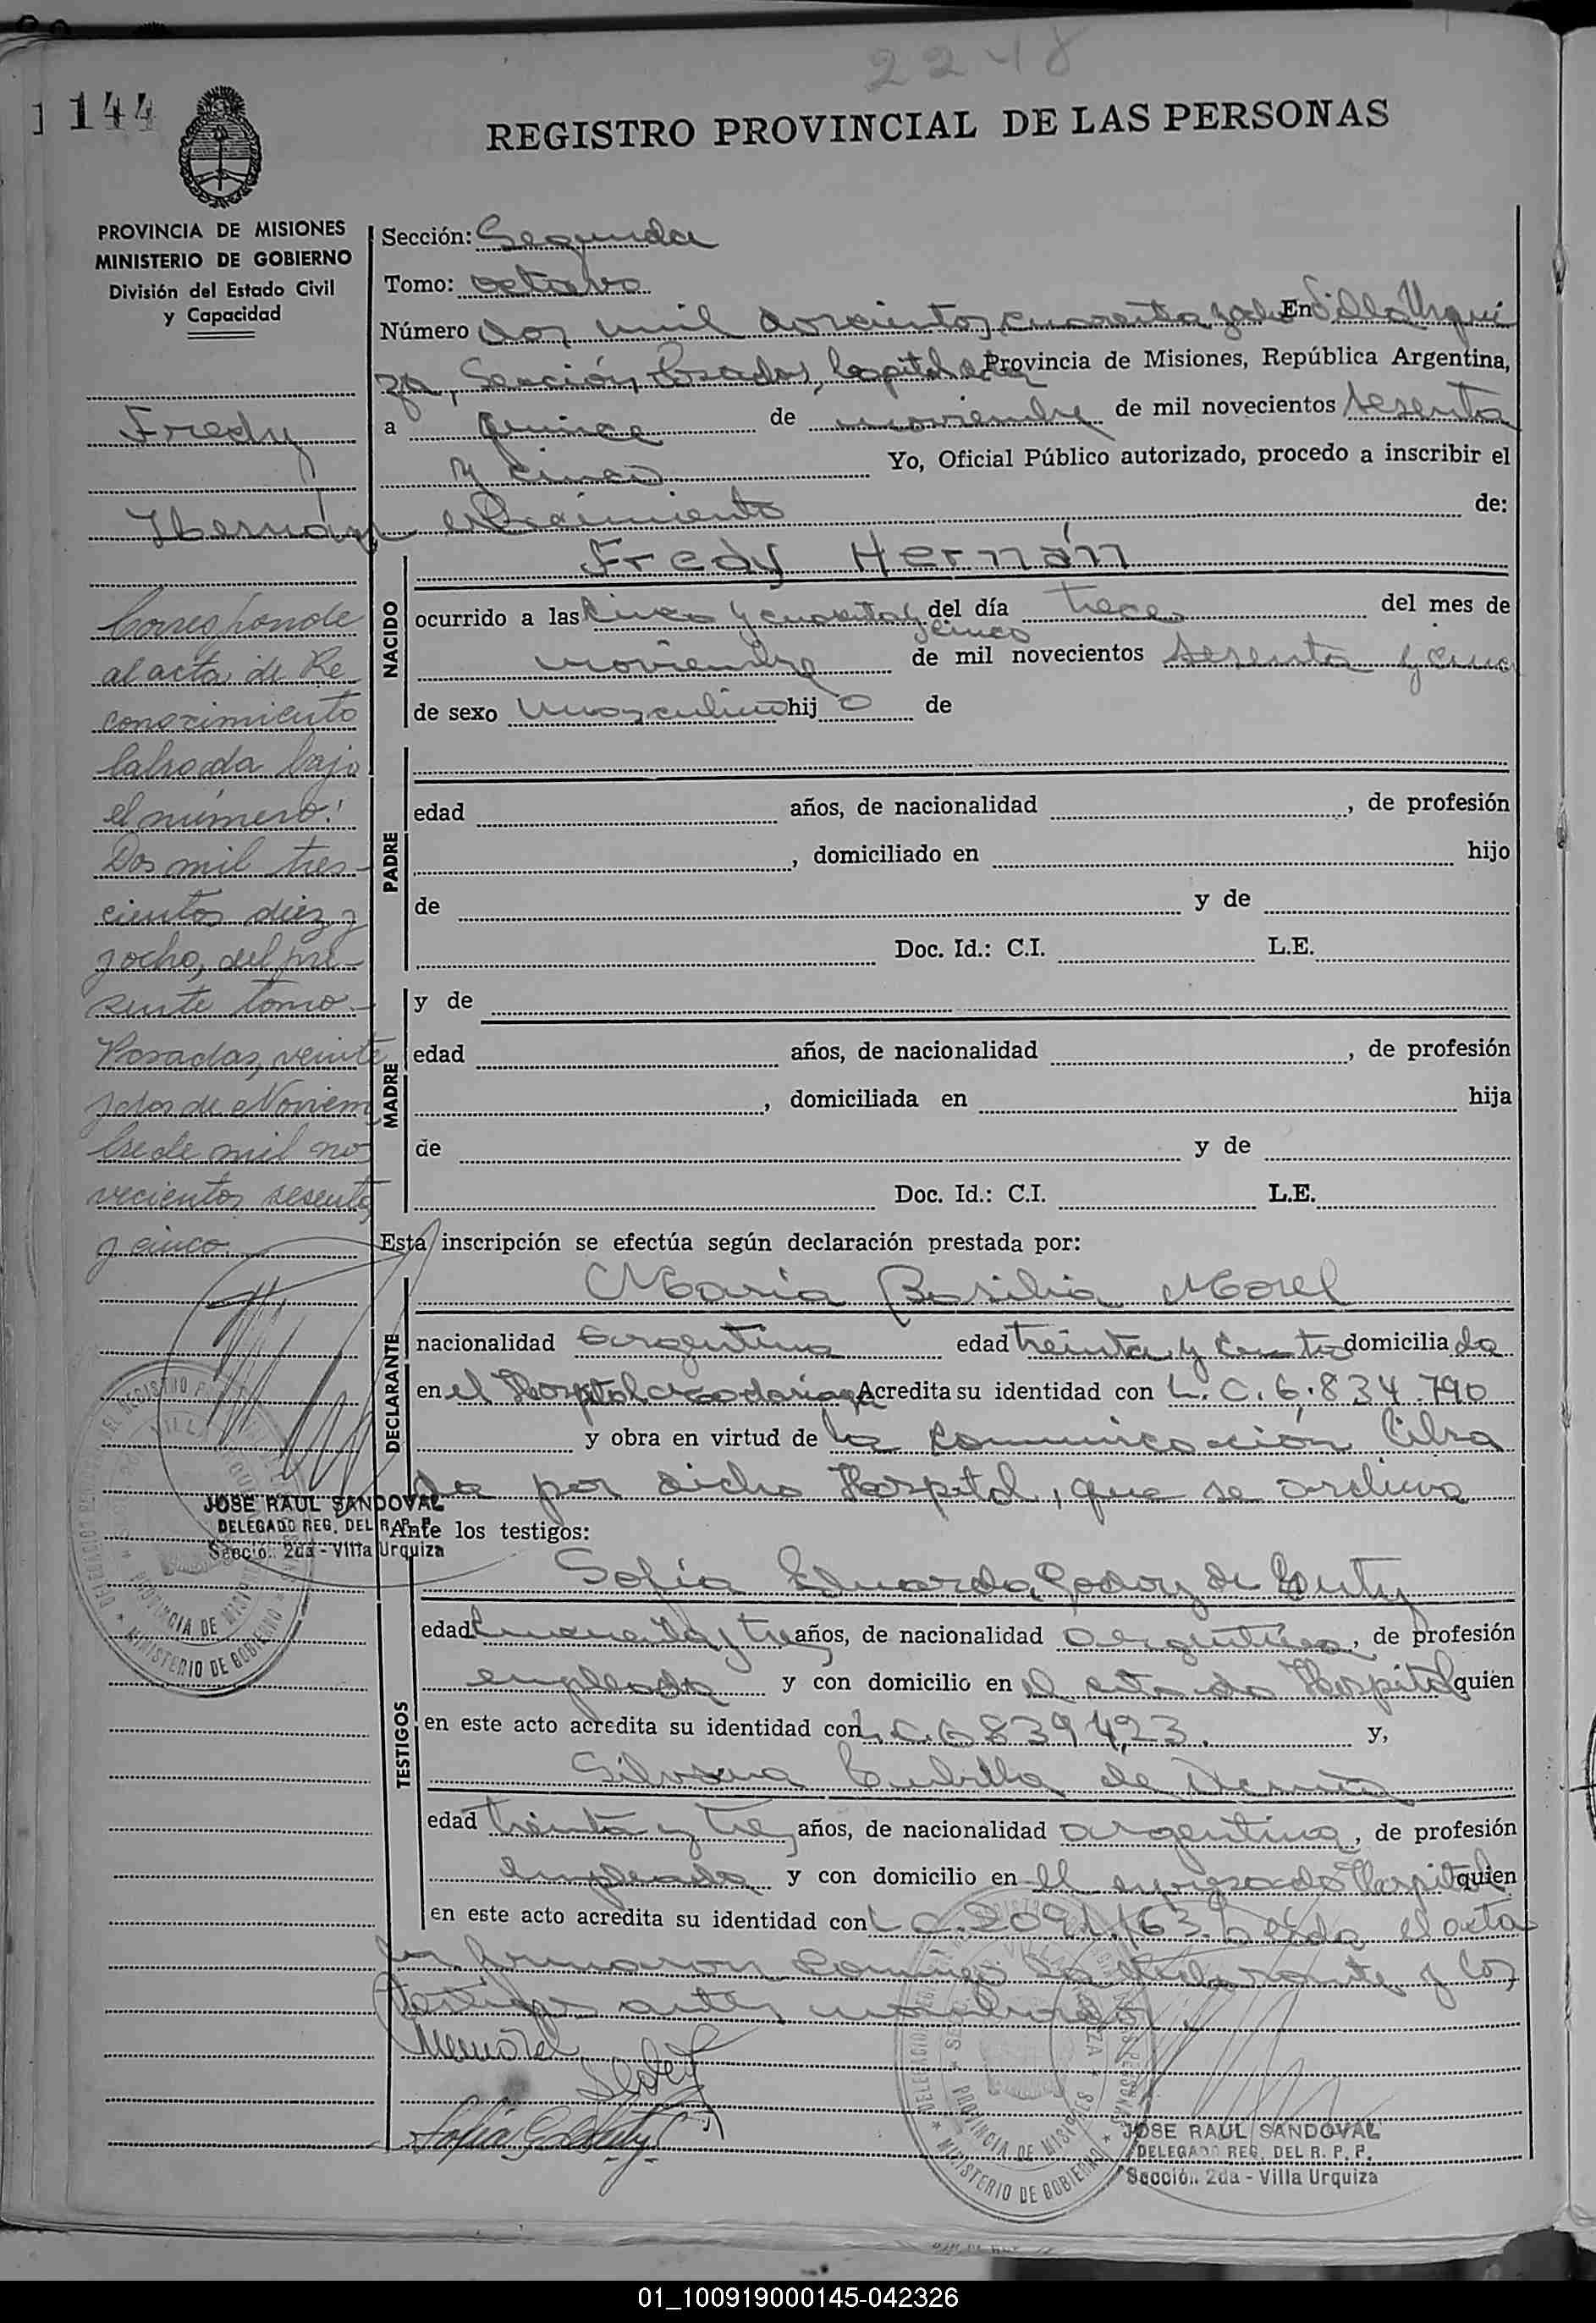 2248
1144
REGISTRO PROVINCIAL DE LAS PERSONAS
PROVINCIA DE MISIONES
MINISTERIO DE GOBIERNO
División del Estado Civil
y Capacidad
Fredy
Hernán
Corresponde
al acta de Re
conocimiento
labrada bajo
el número:
Dos mil tres-
cientos diez y
y ocho, del pre-
sente tomo.-
Posadas, veinte
y dos de Noviem
bre de mil no
vecientos sesenta
y cinco.
JOSE RAUL SANDOVAL
DELEGADO REG. DEL R. P. P.
Sección 2da - Villa Urquiza
Sección: Segunda
Tomo: octavo
Número dos mil doscientos cuarenta y ocho En Villa Urqui
za, Sección Posadas, Capital de la Provincia de Misiones, República Argentina,
a quince de noviembre de mil novecientos sesenta
y cinco Yo, Oficial Público autorizado, procedo a inscribir el
Nacimiento de:
NACIDO
Fredy Hernán
ocurrido a las cinco y cuarenta y cinco del día trece del mes de
noviembre de mil novecientos sesenta y cinco
de sexo masculino hijo de
PADRE
edad años, de nacionalidad , de profesión
, domiciliado en hijo
de y de
Doc. Id.: C.I. L.E.
MADRE
y de
edad años, de nacionalidad , de profesión
, domiciliada en hija
de y de
Doc. Id.: C.I. L.E.
Esta inscripción se efectúa según declaración prestada por:
DECLARANTE
María Basilia Morel
nacionalidad argentina edad treinta y cuatro domiciliada
en el Hospital Madariaga Acredita su identidad con L.C. 6.834.790
y obra en virtud de la comunicación libra
da por dicho Hospital, que se archiva
Ante los testigos:
TESTIGOS
Sofía Eduarda Godoy de
edad cincuenta y tres años, de nacionalidad argentina, de profesión
empleada y con domicilio en el citado Hospital quien
en este acto acredita su identidad con L.C. 6839423. y,
Silvana Cubilla de
edad treinta y tres años, de nacionalidad argentina, de profesión
empleada y con domicilio en el expresado Hospital quien
en este acto acredita su identidad con L.C. 2091.163. Leída el acta
la firmaron conmigo la declarante y los
testigos antes nombrados.
JOSE RAUL SANDOVAL
DELEGADO REG. DEL R. P. P.
Sección 2da - Villa Urquiza
01_100919000145-042326